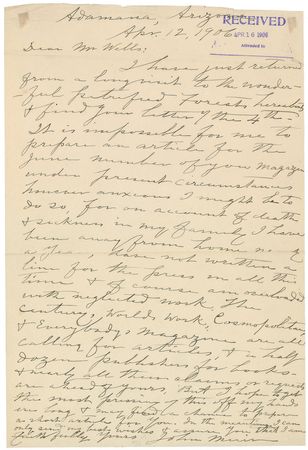 Adamana, Arizona
RECEIVED
APR 16 1906
Attended to
Apr. 12, 1906
Dear Mr Wells:
I have just returned
from a long visit to the wonder-
ful petrified forests hereabouts
& find your letter of the 4th
It is impossible for me to
prepare an article for the
June number of your Magazine
under present circumstances
however anxious I might be to
do so, for on account of death
& sickness in my family I have
been away from home nearly
a year, have not written a
line for the press in all this
time & of course am
with neglected work. The
Century, Worlds Work, Cosmopolitan
& Everybodys Magazine are all
calling for articles, & a half
dozen publishers for books.
& nearly all these claims or requests
are ahead of yours, but I hope to get
the most pressing of this off my hands
ere long & may find a chance to prepare
a short article for you. In the meantime I can
only send my best wishes & assure you that I am
Faithfully Yours John Muir